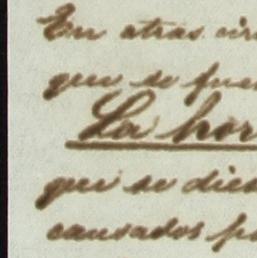 En otras cir
que se fue
La hor
que se dies
causados po